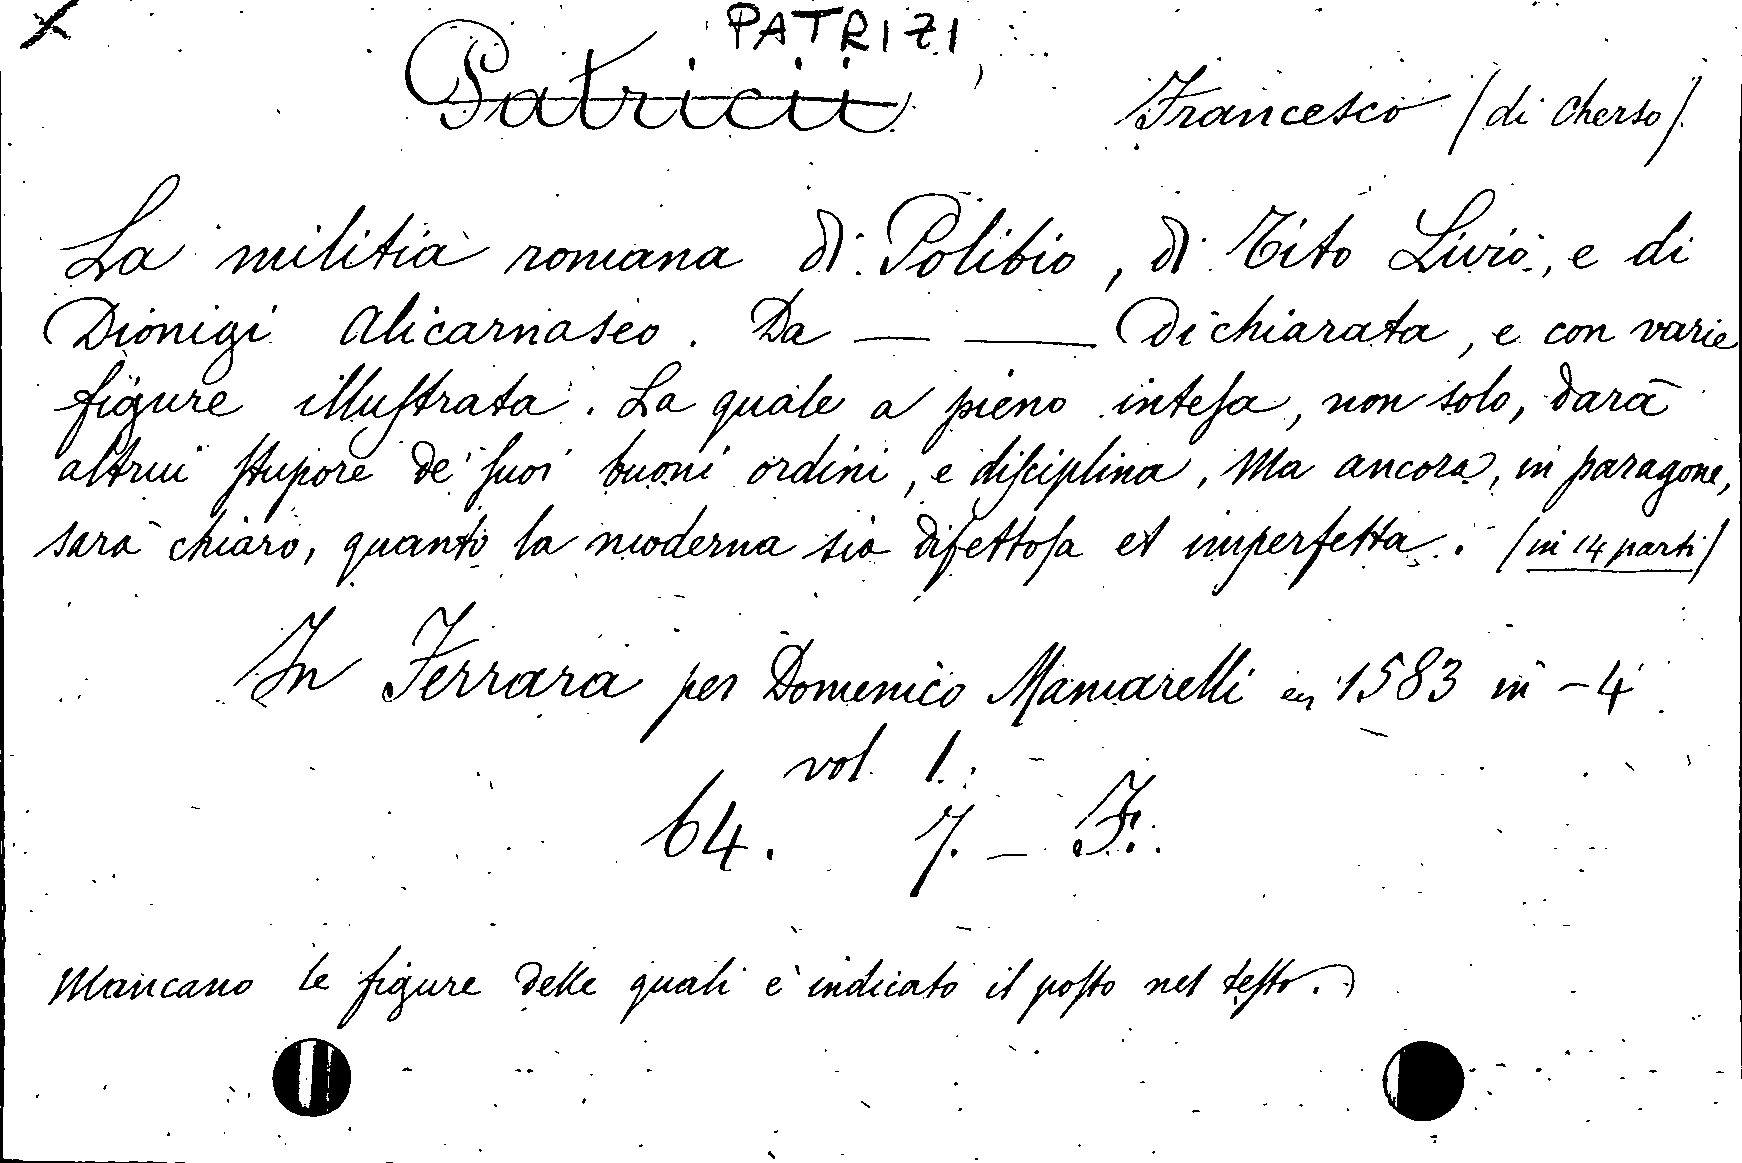 PATRIZI,
Patricii Francesco (di Cherso).
La militia romana di Polibio, di Tito Livio, e di
Dionigi Alicarnaseo. Da — — Dichiarata, e con varie
figure illuſtrata. La quale a pieno inteſa, non solo, darà
altrui ſtupore de' ſuoi buoni ordini, e diſciplina, Ma ancora, in paragone,
sarà chiaro, quanto la moderna sia difettoſa et imperfetta. (in 14 parti)
In Ferrara per Domenico Mamarelli 1583 in -4
vol. 1.
64. 7. _ F.
Mancano le figure delle quali è indicato il poſto nel teſto.